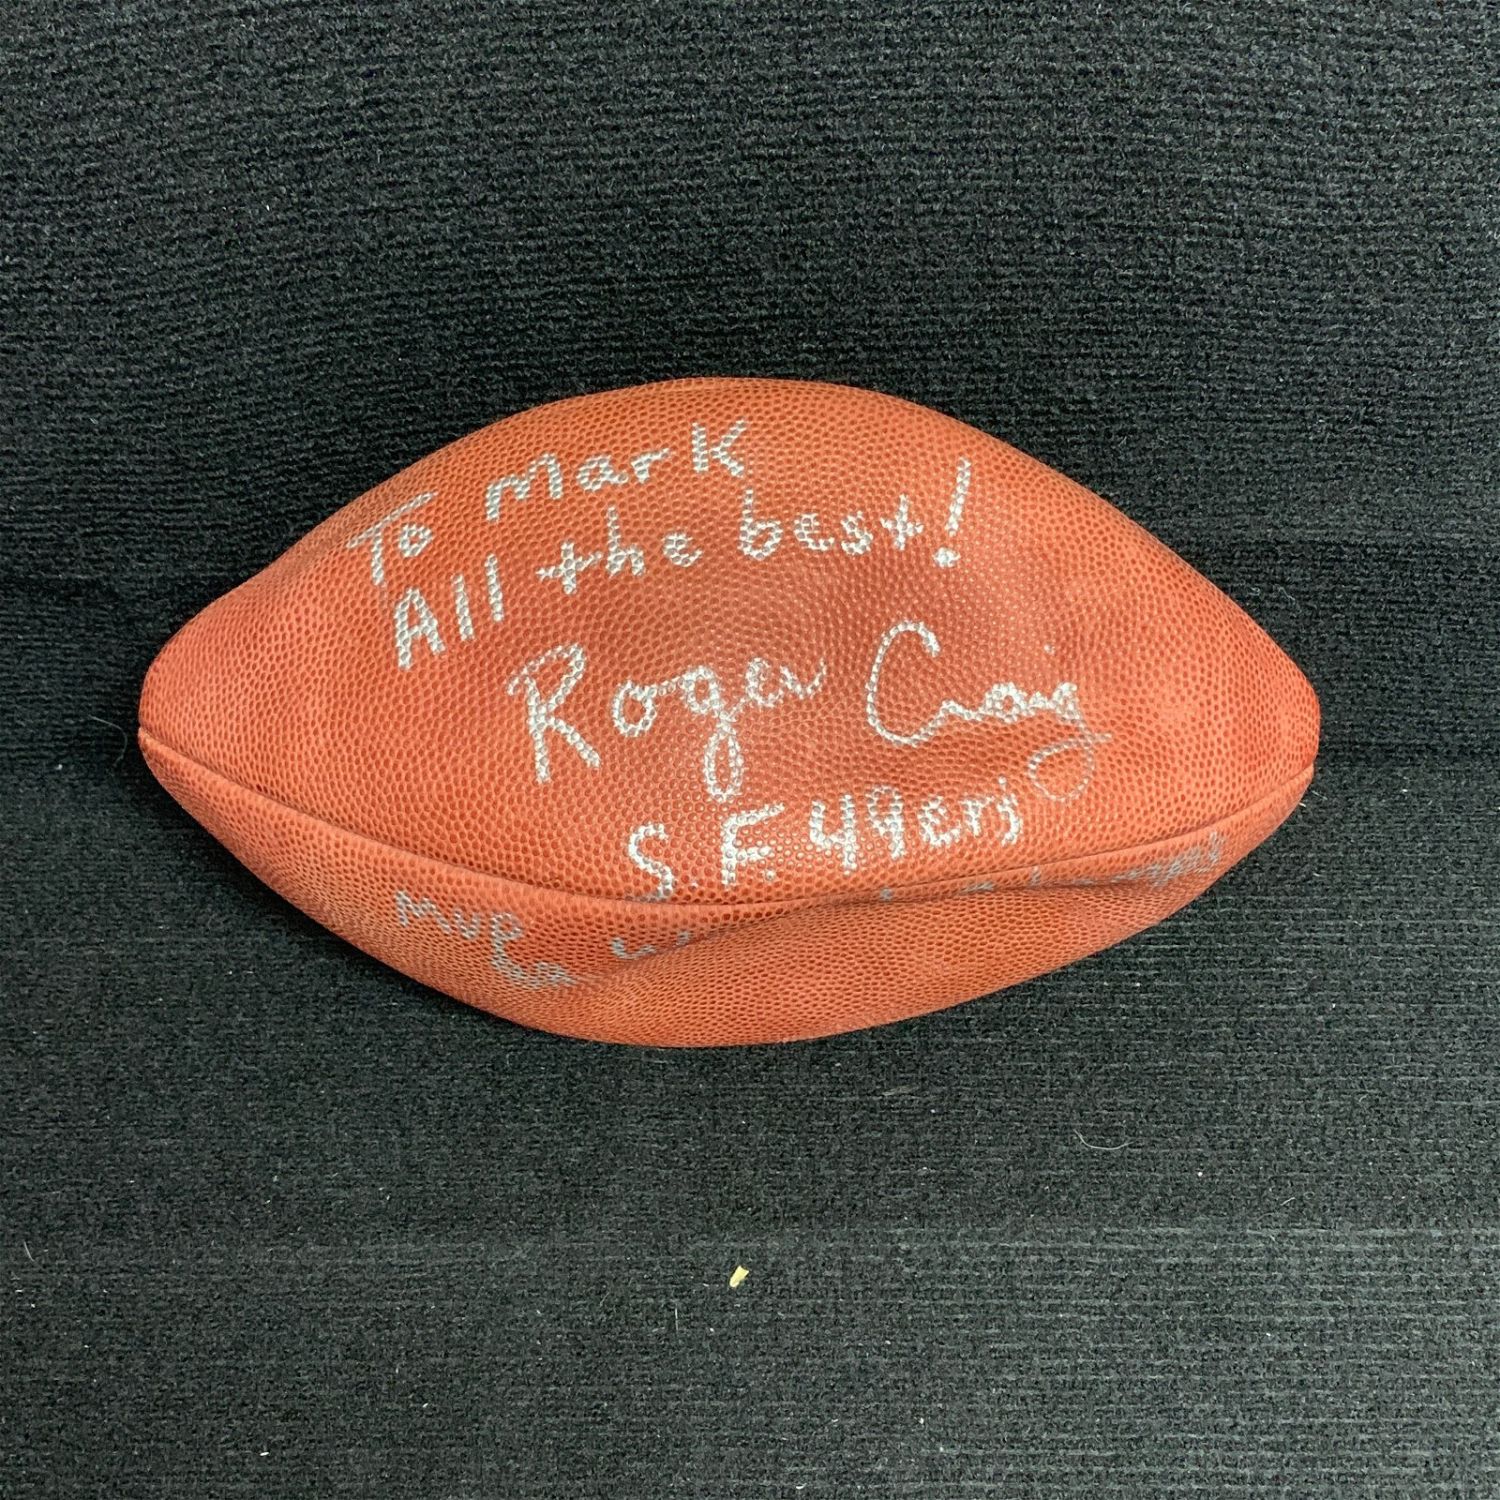 To Mark
All the best!
Roger Craig
S.F. 49ers
MVP